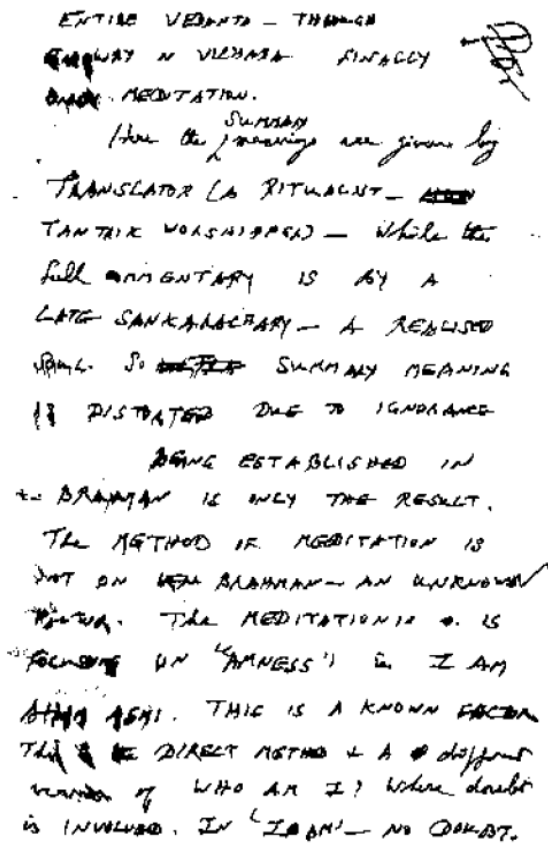 ENTIRE VEDANTA — THROUGH
ENQUIRY IN VICHARA FINALLY
MEDITATION.
SUMMARY
Here the meanings are given by
TRANSLATOR (A RITUALIST —
TANTRIK WORSHIPPER) — While the
full COMMENTARY IS BY A
LATE SANKARACHARY — A REALISED
SOUL. So SUMMARY MEANING
IS DISTORTED DUE TO IGNORANCE
BEING ESTABLISHED IN
BRAHMAN IS ONLY THE RESULT.
The METHOD OF MEDITATION IS
NOT ON BRAHMAN — AN UNKNOWN
FACTOR. The MEDITATION IS
FOCUSING ON "AMNESS" I AM
AHAM ASMI. THIS IS A KNOWN FACTOR
THIS IS DIRECT METHOD & A different
version of WHO AM I? Where doubt
is INVOLVED. IN 'I AM' — NO DOUBT.